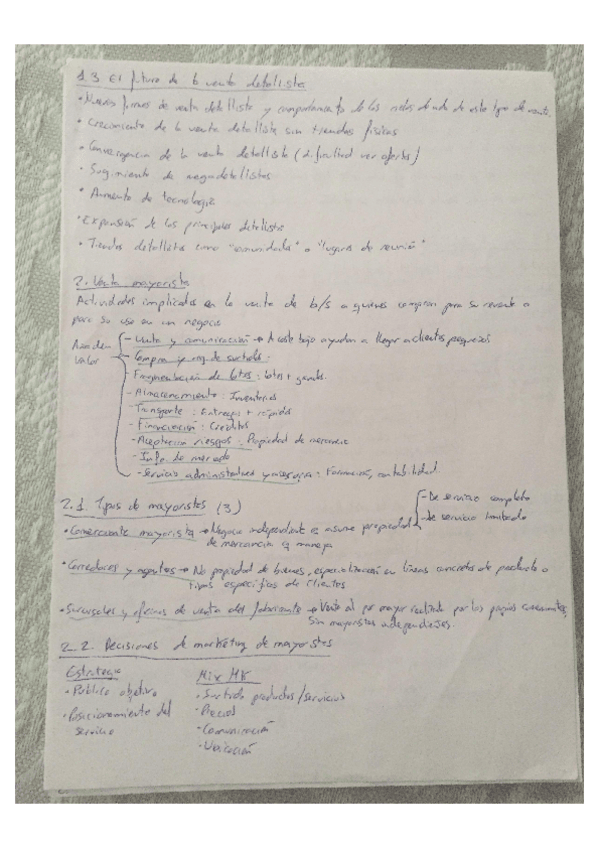 1.3 El futuro de la venta detallista
• Nuevas formas de venta detallista y acortamiento de los ciclos de vida de este tipo de venta.
• Crecimiento de la venta detallista sin tiendas físicas
• Convergencia de la venta detallista (dificultad ver ofertas)
• Surgimiento de megadetallistas
• Aumento de tecnología
• Expansión de los principales detallistas
• Tiendas detallistas como "comunidades" o "lugares de reunión"
2. Venta mayorista
Actividades implicadas en la venta de b/s a quienes compran para su reventa o
para su uso en un negocio
Añaden valor
- Venta y comunicación → A coste bajo ayudan a llegar a clientes pequeños
- Compra y org. de surtidos:
- Fragmentación de lotes: lotes + grandes.
- Almacenamiento: Inventarios
- Transporte: Entregas + rápidas
- Financiación: Créditos
- Aceptación riesgos: Propiedad de mercancía
- Info. de mercado
- Servicio administrativo y asesoría: Formación, contabilidad.
2.1. Tipos de mayoristas (3)
• Comerciante mayorista → Negocio independiente q asume propiedad
de mercancía q maneja
- De servicio completo
- De servicio limitado
• Corredores y agentes → No propiedad de bienes, especialización en líneas concretas de producto o
tipos específicos de clientes
• Sucursales y oficinas de venta del fabricante → Venta al por mayor realizada por los propios
sin mayoristas independientes.
2.2. Decisiones de marketing de mayoristas
Estrategia
• Público objetivo
• Posicionamiento del
servicio
Mix MK
• Surtido productos/servicios
• Precios
• Comunicación
• Ubicación